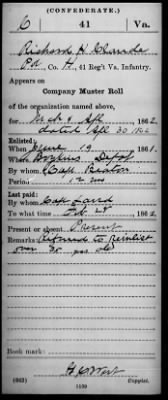 (CONFEDERATE.)
C 41 Va.
Richard H
Pvt., Co. H, 41 Reg't Va. Infantry.
Appears on
Company Muster Roll
of the organization named above,
for Mch & Apl, 1862.
dated Apl 30 1862
Enlisted:
When June 19, 1861.
Where Depot
By whom Capt
Period 12 mos
Last paid:
By whom Capt
To what time Feb 28, 1862.
Present or absent Present
Remarks: Refused to reinlist
over 35 yrs old
Book mark:
(642)
Copyist.